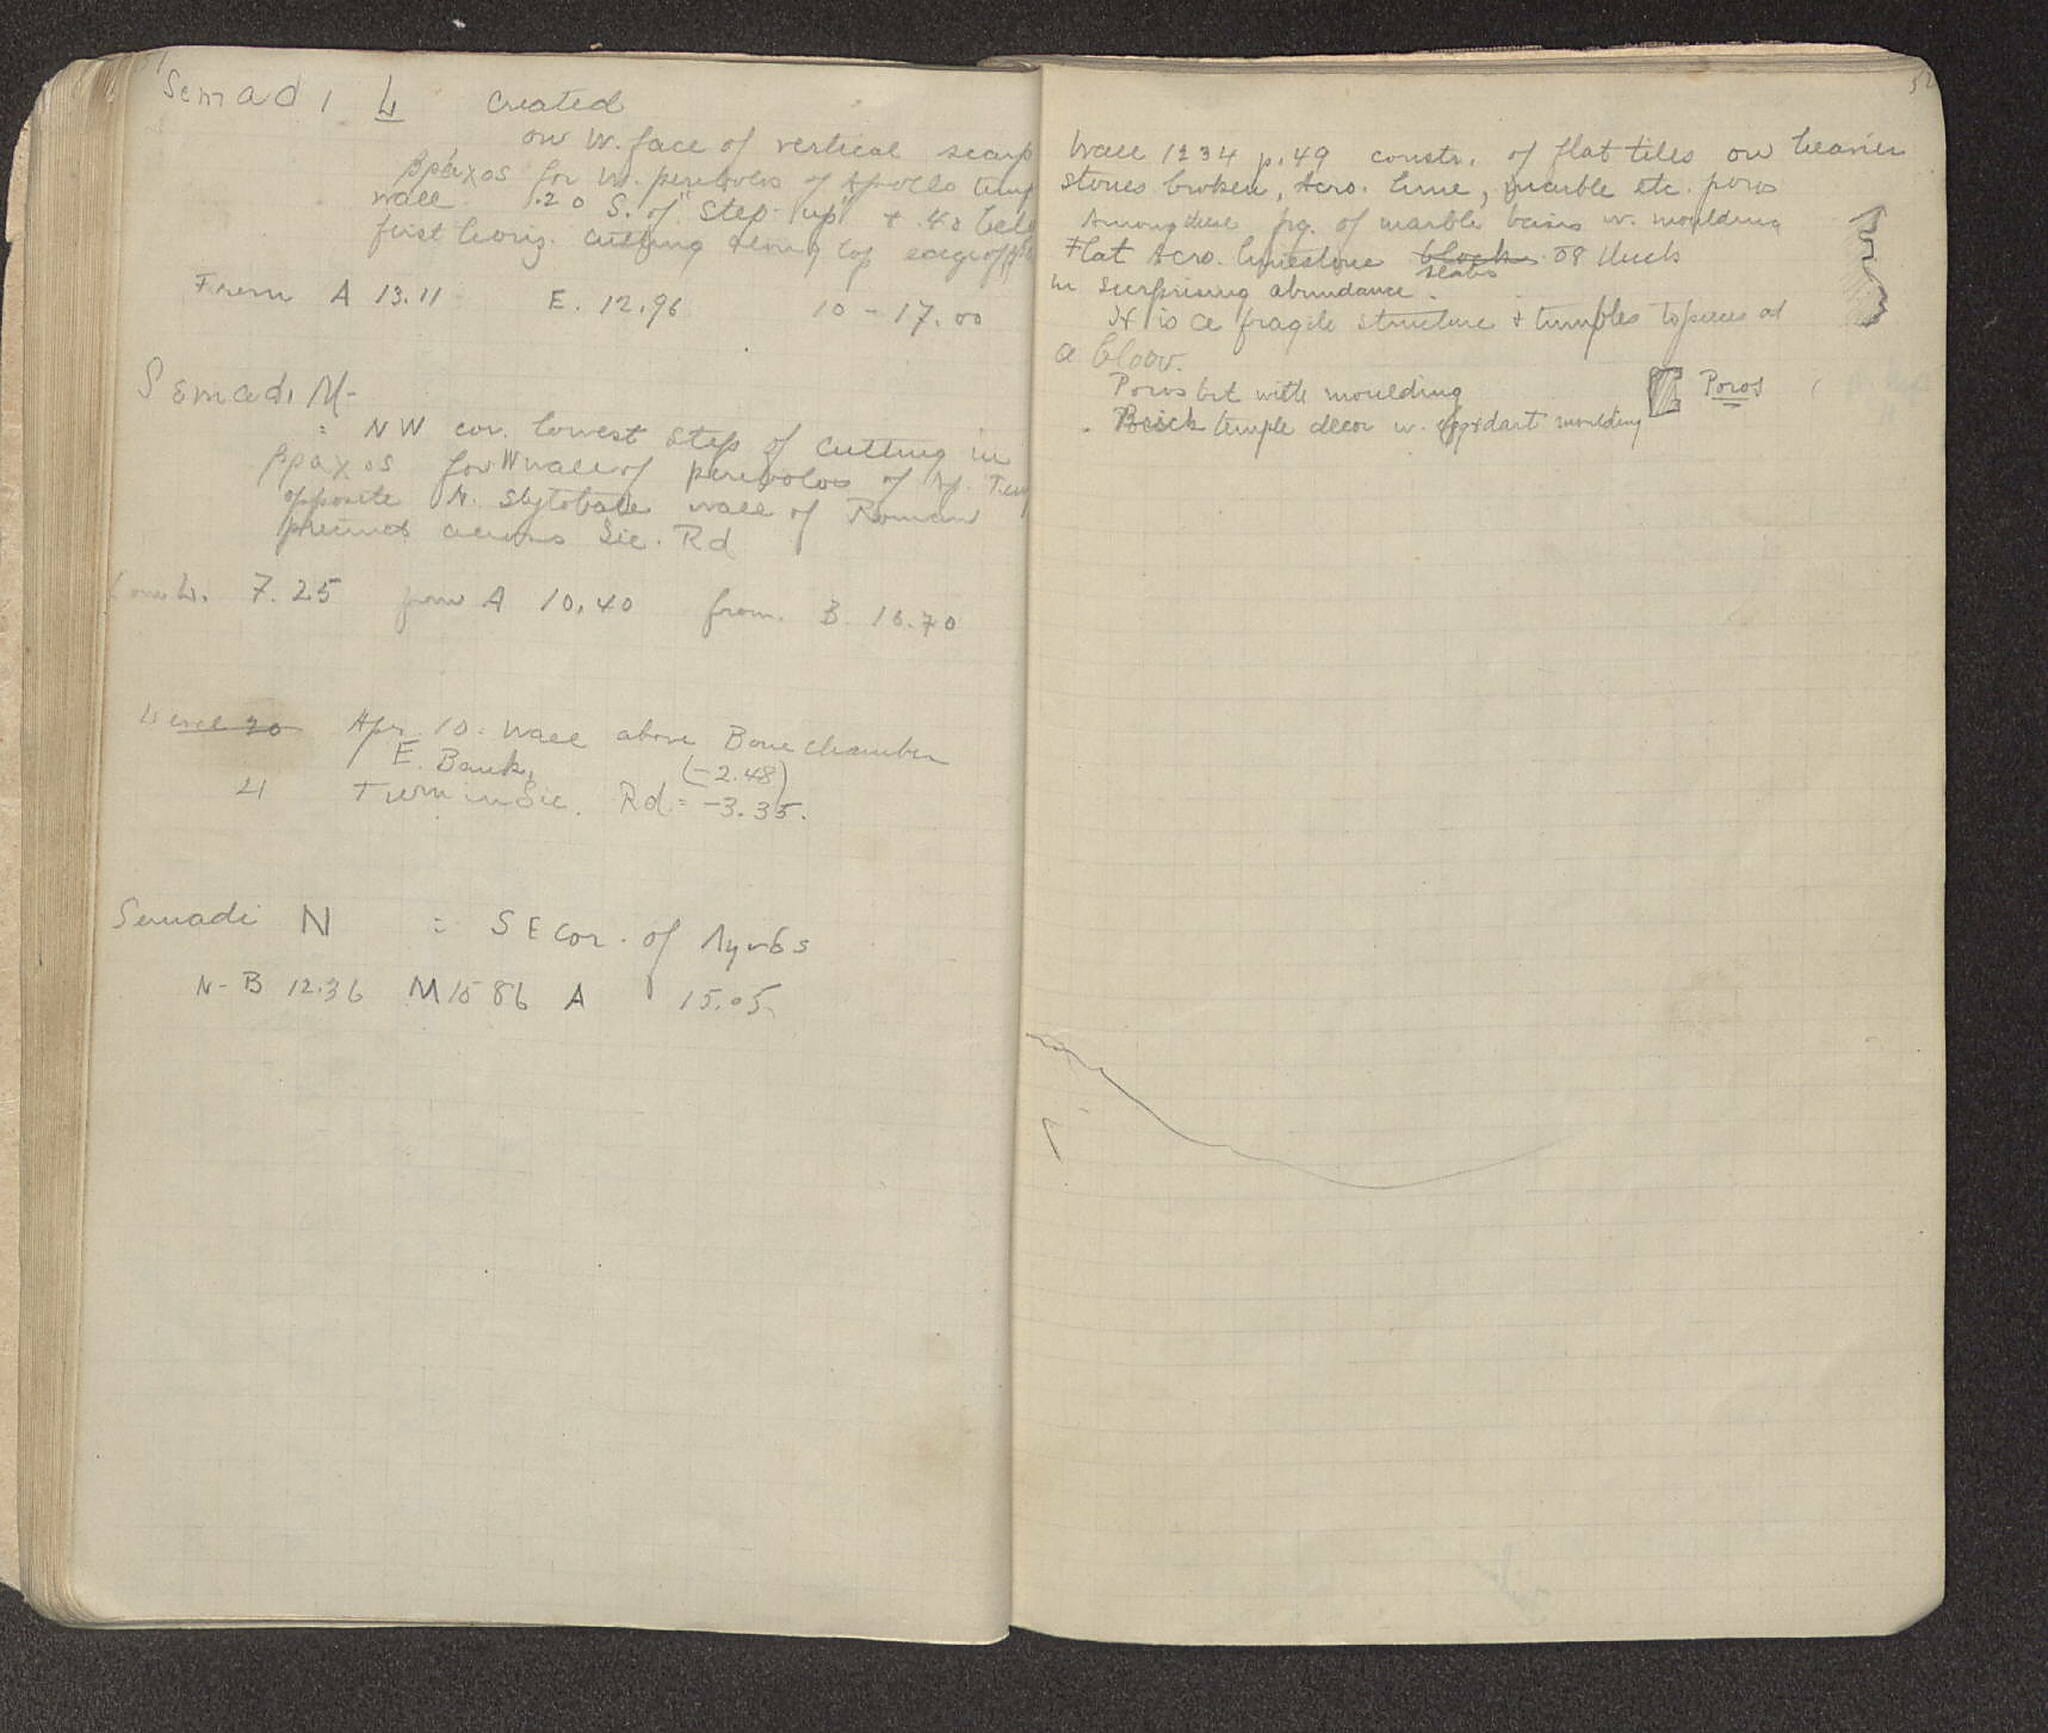 Semadi L created
on W. face of vertical scarp
βράχος for W. peribolos of Apollo temp
wall. .20 S. of "step-up" + .40 bel
first horiz. cutting along top edge of
From A 13.11 E. 12.96 10 - 17.00
Semadi M-
= NW cor. lowest step of cutting in
βραχος for W wall of peribolos of Ap. Tem
opposite N. stylobate wall of Roman
precinct across Sic. Rd
from L. 7.25 from A 10.40 from B 16.70
Level 20 Apr 10. Wall above Bone chamber
E. Bank, (-2.48)
21 Turn in Sic. Rd = -3.35.
Semadi N = SE cor. of
N-B 12.36 M 15 86 A 15.05
52
Wall 1234 p.49 constr. of flat tiles on heavier
stones broken, Acro. lime, marble etc. poros
Among these frg. of marble basis w. moulding
Flat Acro. limestone blocks .08 thick
slabs
in surprising abundance.
It is a fragile structure & tumbles to pieces at
a blow.
Poros bit with moulding Poros
temple decor w. egg & dart moulding